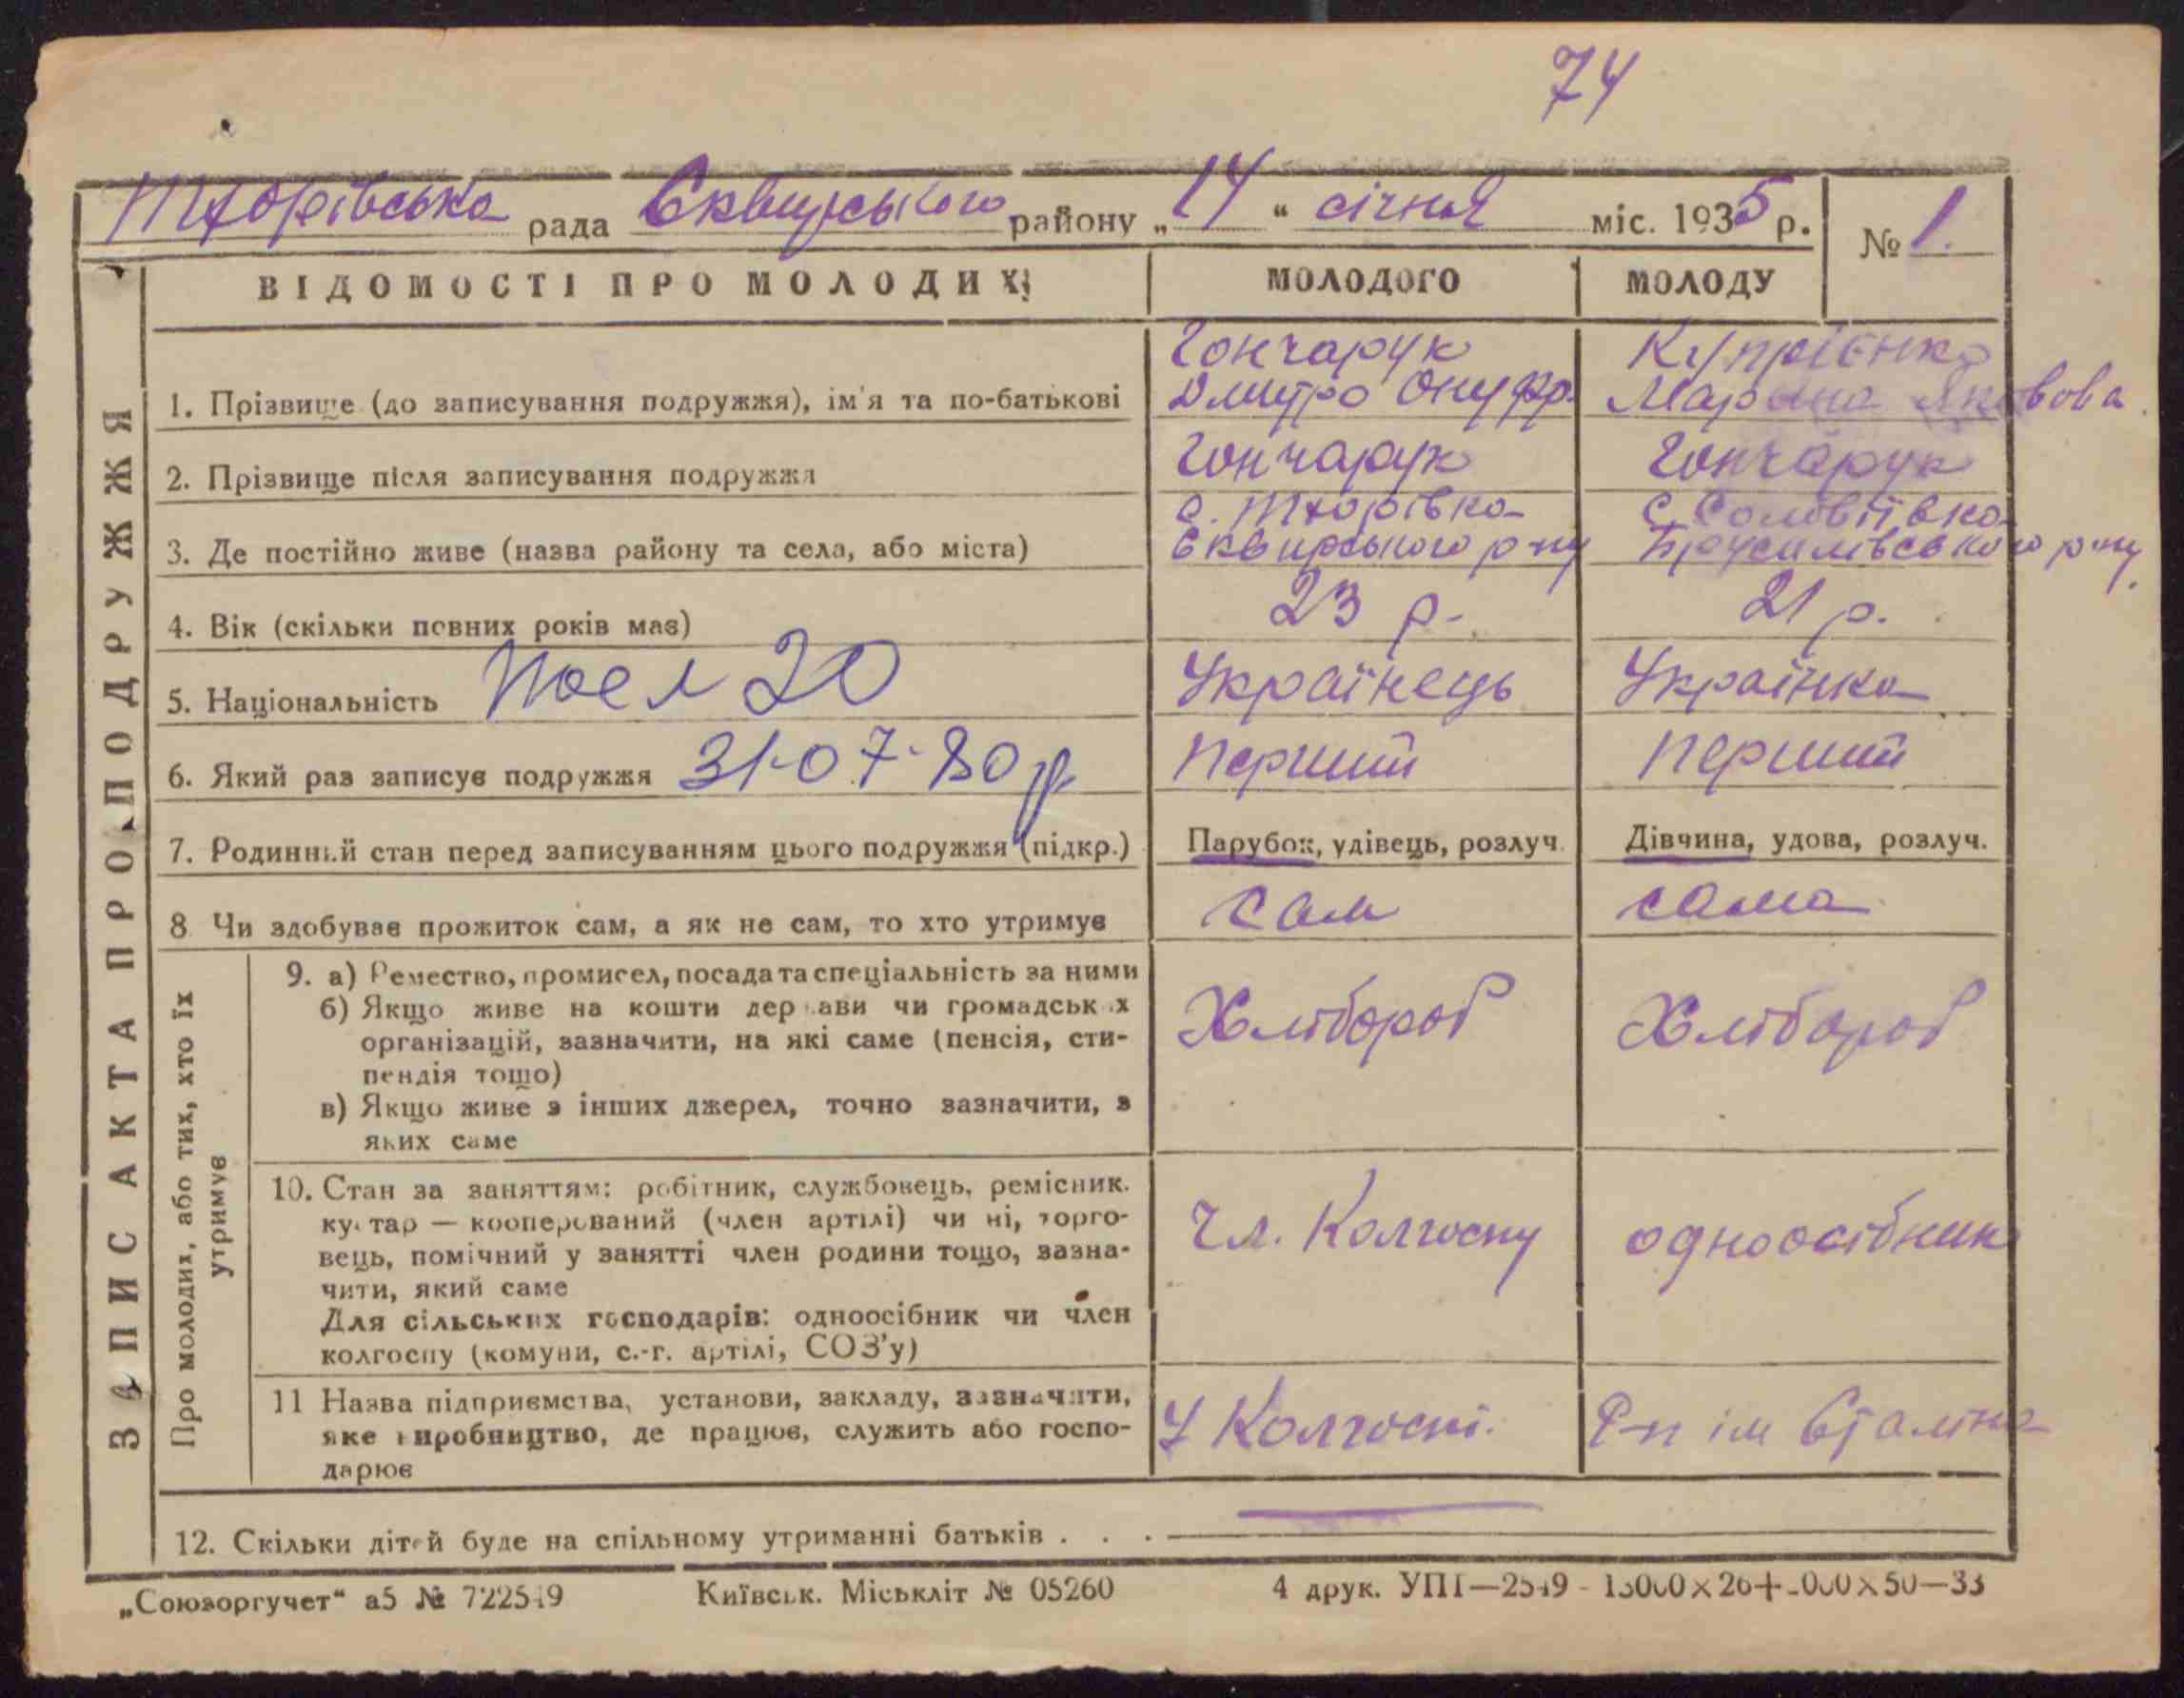 74
Тхорівська рада Сквирського району „14“ січня міс. 1935 р. № 1.
ВІДОМОСТІ ПРО МОЛОДИХ МОЛОДОГО МОЛОДУ
Гончарук Купрієнко
1. Прізвище (до записування подружжя), ім'я та по-батькові Дмитро Онуфр. Яковова
2. Прізвище після записування подружжя Гончарук Гончарук
с. Тхорівка с. Соловіївка
3. Де постійно живе (назва району та села, або міста) Сквирського р-ну Брусилівського р-ну
4. Вік (скільки повних років має) 23 р. 21 р.
5. Національність 20 Українець Українка
6. Який раз записує подружжя 31-07-80 р. Перший Перший
7. Родинний стан перед записуванням цього подружжя (підкр.) Парубок, удівець, розлуч. Дівчина, удова, розлуч.
8 Чи здобуває прожиток сам, а як не сам, то хто утримує сам сама
9. а) Ремество, промисел, посада та спеціальність за ними
б) Якщо живе на кошти держави чи громадських Хлібороб Хлібороб
організацій, зазначити, на які саме (пенсія, сти-
пендія тощо)
в) Якщо живе з інших джерел, точно зазначити, з
яких саме
10. Стан за заняттям: робітник, службовець, ремісник.
кустар — кооперований (член артілі) чи ні, торго- чл. Колгоспу одноосібник
вець, помічний у занятті член родини тощо, зазна-
чити, який саме
Для сільських господарів: одноосібник чи член
колгоспу (комуни, с.-г. артілі, СОЗ'у)
11 Назва підприємства, установи, закладу, зазначити,
яке виробництво, де працює, служить або госпо- У Колгоспі. ім Сталіна
дарює
12. Скільки дітей буде на спільному утриманні батьків . . .
ЗАПИС АКТА ПРО ПОДРУЖЖЯ
Про молодих, або тих, хто їх
утримує
„Союзоргучет“ а5 № Київськ. Міськліт № 05260 4 друк. УПП